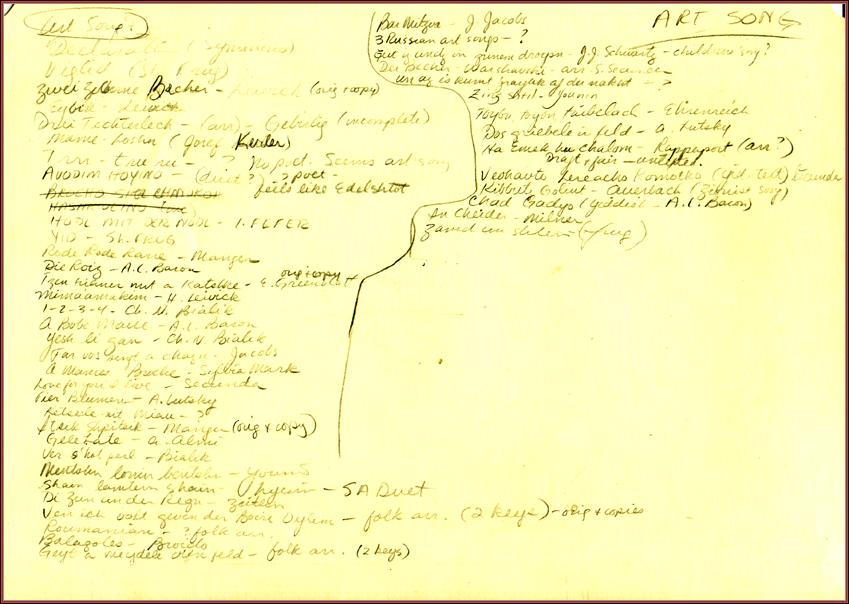 Art Songs
Declaratti (Symmons)
Viglid (Sh. Frug)
Zwei Zilberne Becher - Leivick (orig + copy)
Eybik - Leivick
Drei Techterlech - (arr) - Gebirtig (incomplete)
Mame Loshn (Josef Kerler)
Trrr - true ru - ? No poet. Seems art song
AVODIM HOYINO - (duet?) ? poet -
feels like Edelshtot
HUDL MIT DER NUDL - I. FEFER
YID - SH. FRUG
Rede Rede Rane - Manger
Die Roiz - A.L. Bacon
Tzen Hinner mit a Katshke - E. Greenblatt orig + copy
Mimaamakim - H. Leivick
1-2-3-4 - Ch. N. Bialik
A Bobe Maise - A.L. Bacon
Yesh li gan - Ch. N. Bialik
Far vos zingt a chazn - Jacobs
A Mames Broche - Sylvia Mark
Love for you I live - Secunda
Fier Blumen - A. Lutsky
Ketsele - mit Miau - ?
Itsik Shpitsik - Manger (orig + copy)
Gele - A. Almi
Ver s'hot - Bialik
Mentshn lomir bentshn - Young
Shain lantern shain - Hyein - SA Duet
Di zun under Regn - Zeitlin
Ven ich volt geven der Boire Oylem - folk arr. (2 keys) - orig + copies
Roumanian - ? folk arr.
Balagoles - Broido
Geyt a meydele in feld - folk arr. (2 keys)
ART SONG
Bar Mitzva - J. Jacobs
3 Russian art songs - ?
Zet y und in zunem droysn - J.J. Schwartz - childrens song?
Der Becher - Warshavski - arr. S. Secunda
un az is kumt
Zing shtil - Younin
Toybn Toybn Faibelach - Ehrenreich
Dos griebele in feld - A. Lutsky
Ha Emek hu chalom - Rappaport (arr?)
Draft + fair - untitled.
Veohavto Lereacho Komocho (Yid. text) Secunda
Kibbutz Goliut - Auerbach (Zionist song)
Chad Gadyo (Yiddish - A.L. Bacon)
In Cheider - Milner
Zamd un shtern (Frug)